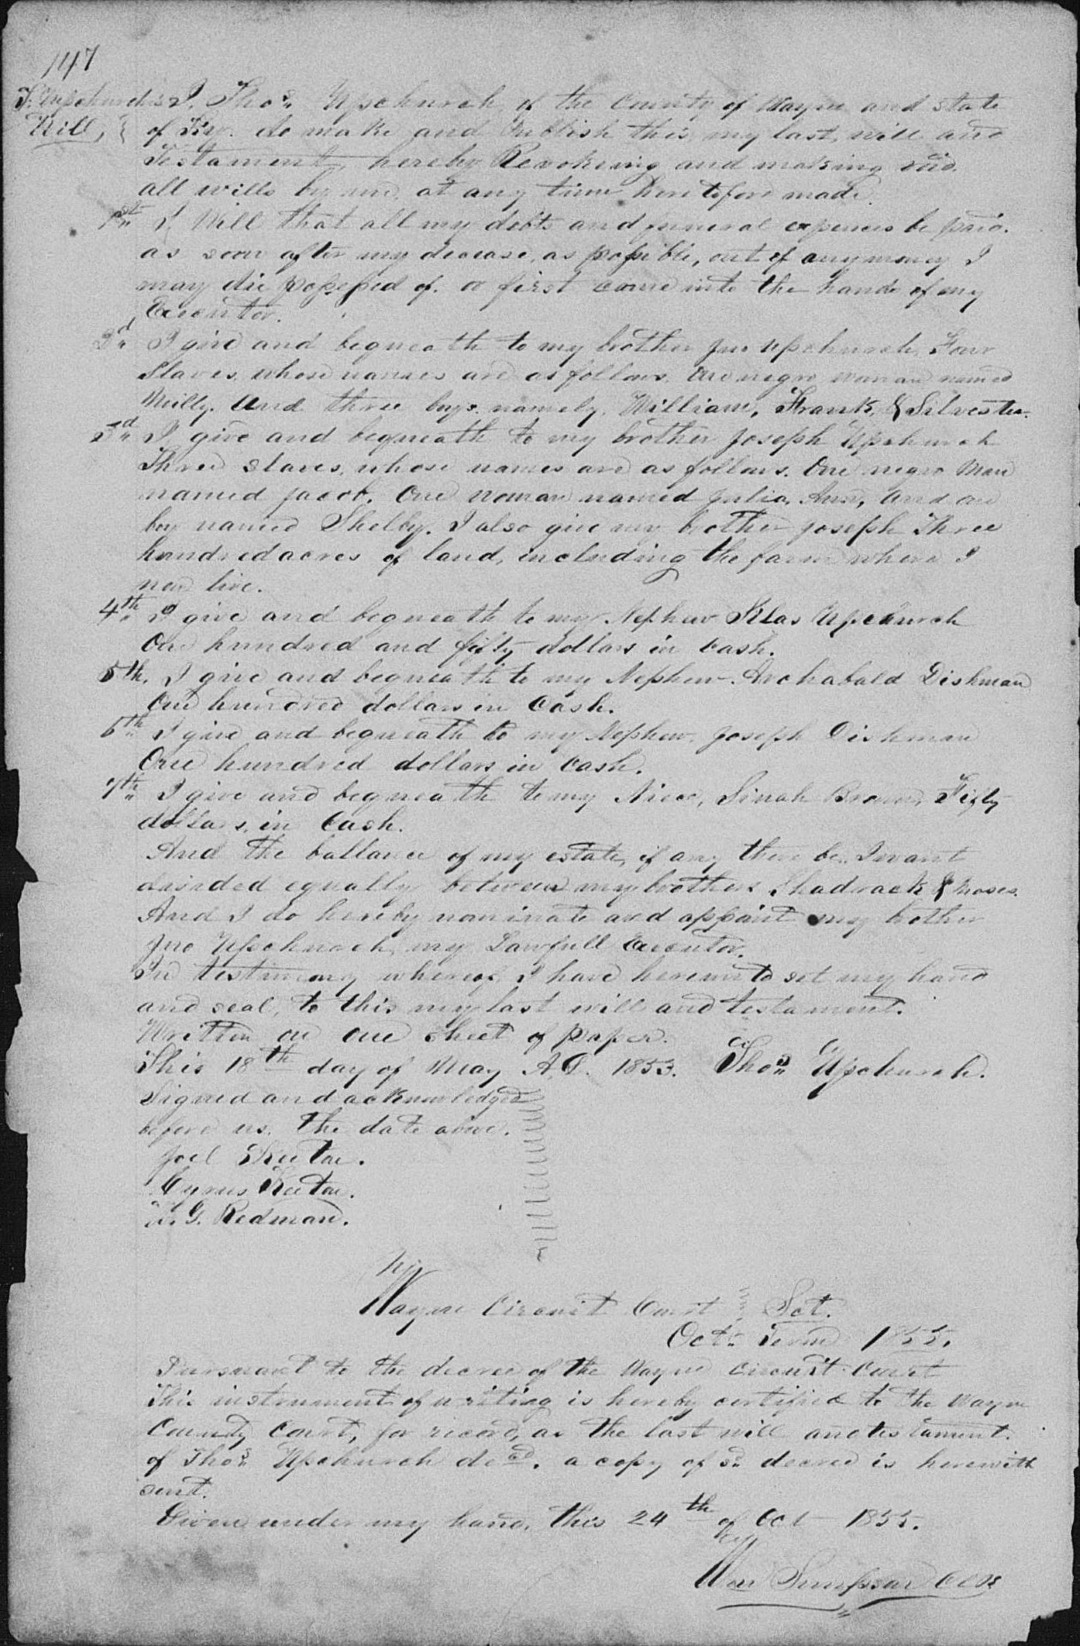 147
T. Upchurch's
Will,
I, Thos. Upchurch, of the County of Wayne and state
of Ky. do make and Publish this, my last, will and
Testament, hereby Revokeing and making void
all wills by me, at any time heretofore made.
1st I, Will that all my debts and funeral expences be paid.
as soon after my decease, as possible, out of any money I
may die possessed of. or first come into the hands of my
Executor.
2nd I give and bequeath to my brother Jno Upchurch, Four
Slaves, whose names are as follows. One negro woman named
Milly. And three boys. namely. William, Frank, & Silvester.
3rd I, give and bequeath to my brother Joseph Upchurch
Three slaves, whose names are as follows. One negro Man
named Jacob. One woman named Julia, Ann, and one
boy named Shelby. I also give my brother Joseph Three
hundred acres of land, including the farm where I
now live.
4th I give and bequeath to my Nephew Silas Upchurch
One hundred and fifty dollars in Cash.
5th. I give and bequeath to my Nephew. Archabald Dishman
One hundred dollars in Cash.
6th I give and bequeath to my Nephew, Joseph Dishman
One hundred dollars in Cash.
7th I give and bequeath to my Niece, Sinah Brown, Fifty
dollars, in Cash.
And the ballance of my estate, if any there be. I want
divided equally between my brothers Shadrack & Moses.
And I do hereby nominate and appoint my brother
Jno Upchurch, my Lawfull Executor.
In testimony whereof, I have hereunto set my hand
and seal, to this my last will and testament.
Written on one sheet of paper.
This 18th day of May A,D. 1853. Thos. Upchurch.
Signed and acknowledged
before us, the date above.
Joel Keeton.
Cyrus Keeton.
G. Redman.
Wayne Circuit Court Sct.
Oct. Term 1855.
Pursuant to the decree of the Wayne Circuit Court
This instrument of writing is hereby certified to the Wayne
County Court, for record, as the last will and testament.
of Thos. Upchurch decd. a copy of sd. decree is herewith
sent.
Given under my hand, this 24th of Oct 1855.
Wm Simpson Clk